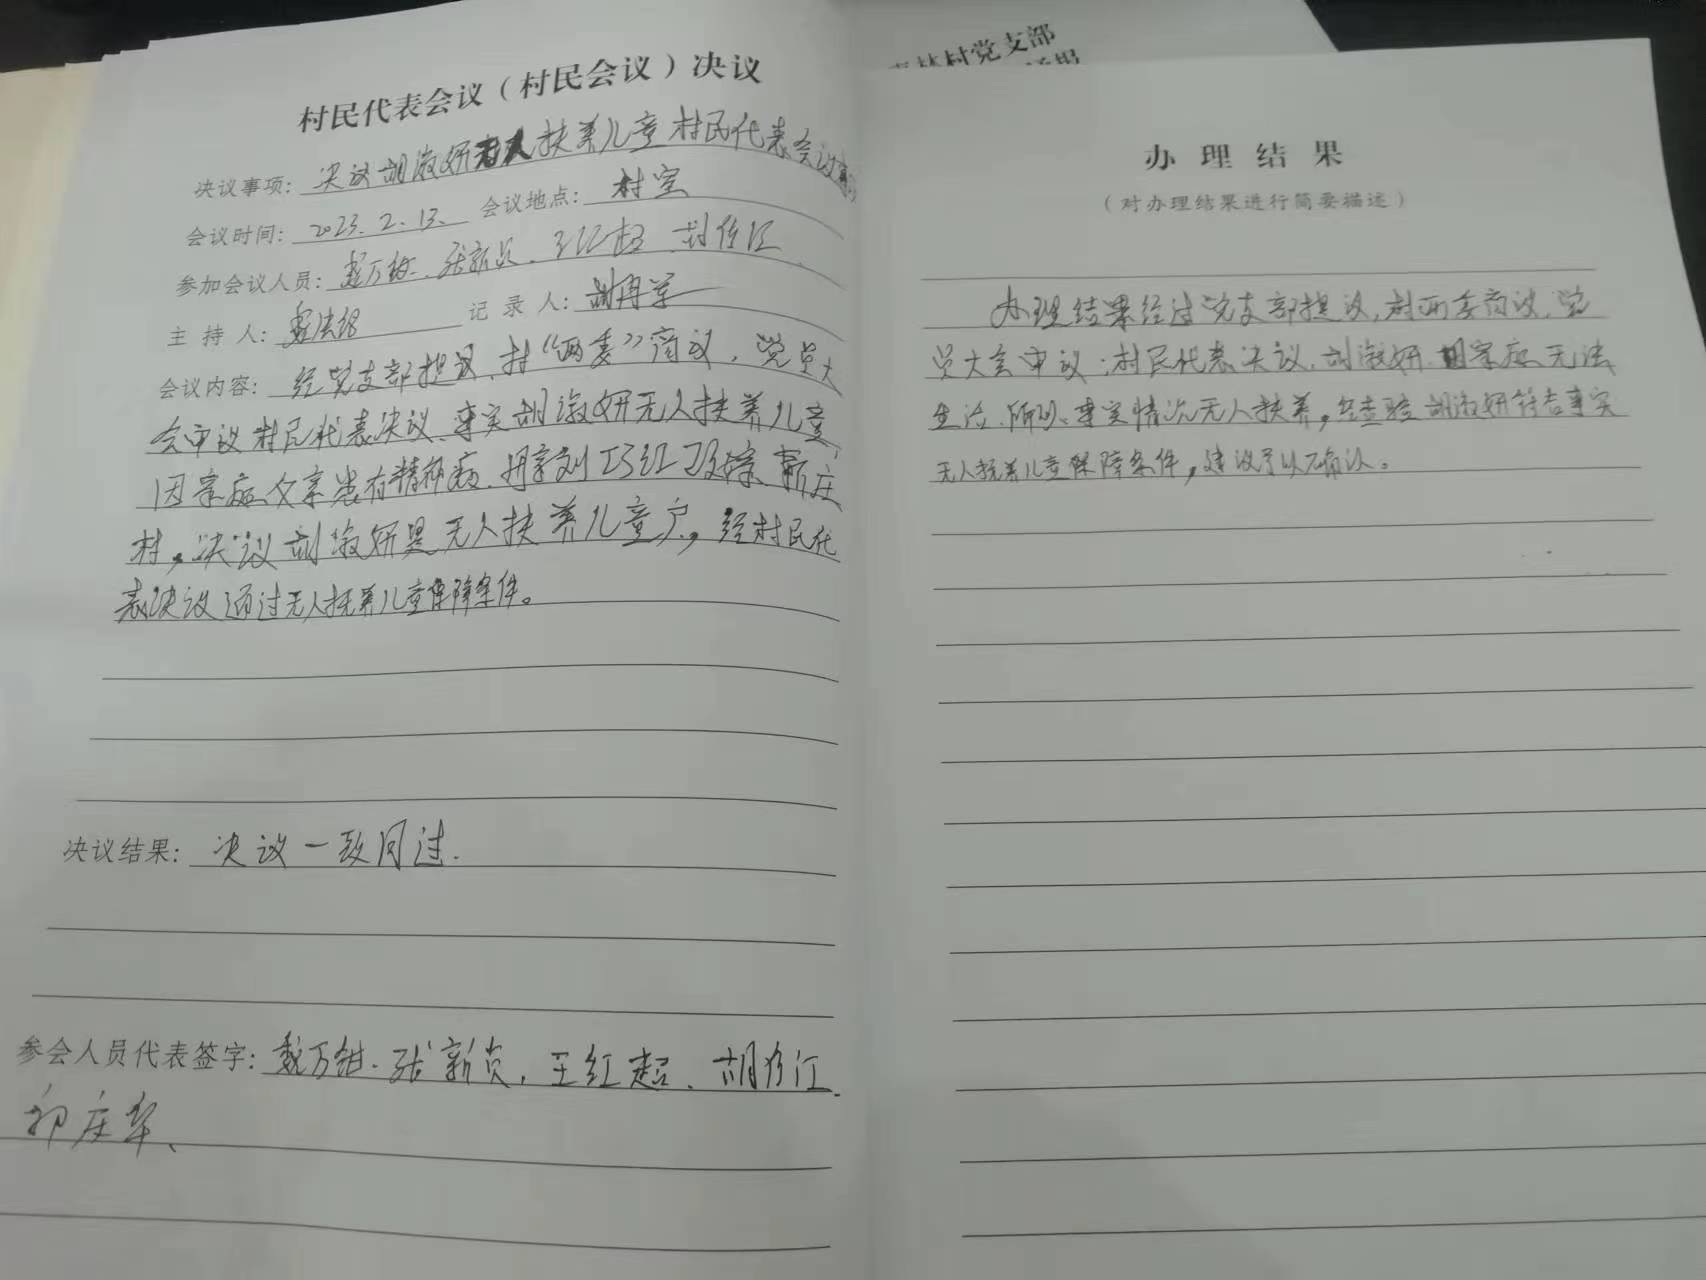 村民代表会议（村民会议）决议
决议事项：决议胡淑妍无人扶养儿童村民代表会议
会议时间：2023.2.13. 会议地点：村室
参加会议人员：
主持人： 记录人：
会议内容：经党支部提议、村“两委”商议，党员大
会审议村民代表决议、事实胡淑妍无人扶养儿童，
因家庭父亲患有精神病、
村，决议胡淑妍是无人扶养儿童户，经村民代
表决议通过无人扶养儿童保障条件。
决议结果：决议一致同过.
参会人员代表签字：魏万钳.张新贞，王红超.
村党支部
办理结果
（对办理结果进行简要描述）
办理结果经过党支部提议，村两委商议，党
员大会审议；村民代表决议，胡淑妍 家庭无法
生活.所以.事实情况无人扶养，经查验胡淑妍符合事实
无人扶养儿童保障条件，建议予以确认。